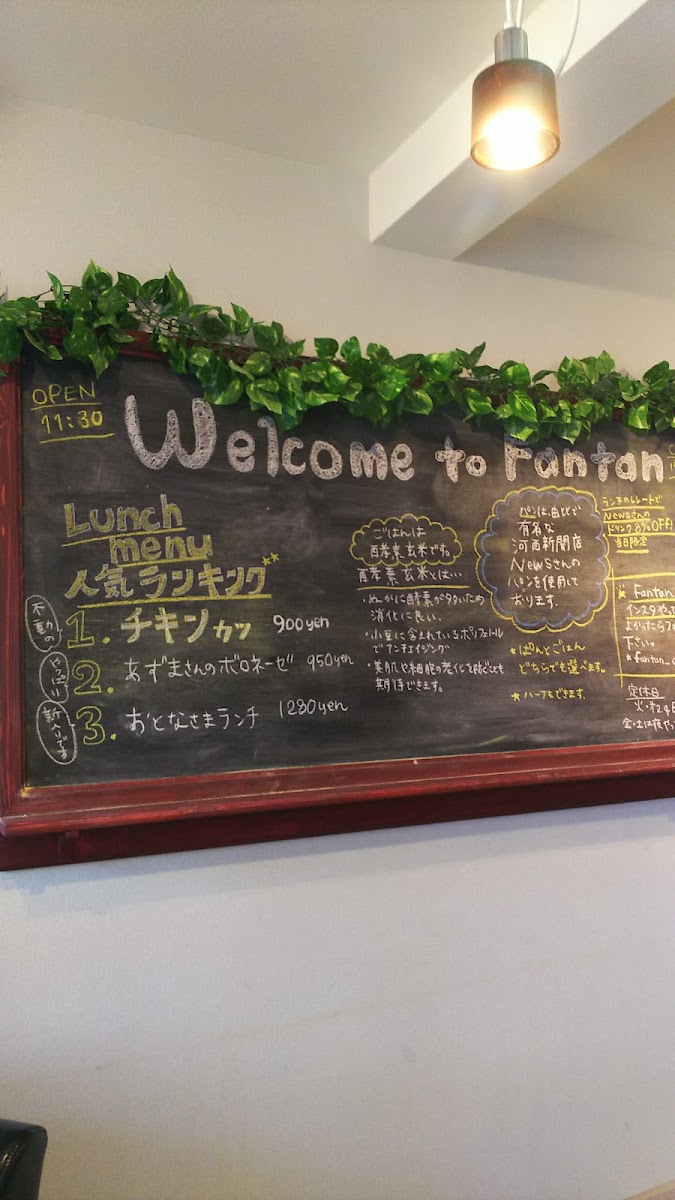 OPEN
11:30
Welcome to Fantan
Lunch
menu
人気ランキング
不動の
1. チキンカツ 900yen
やっぱり
2. あずまさんのボロネーゼ 950yen
新入りです
3. おとなさまランチ 1280yen
ごはんは
酵素玄米です。
酵素玄米ては…
・ぬかに酵素が多いため
消化に良い。
・小豆に含まれているポリフェノール
でアンチエイジング
・美肌や細胞の老化を防ぐとても
期待できます。
パンは、由比で
有名な
河西新聞店
Newsさんの
パンを使用して
おります。
★ぱんとごはん
どちらでも選べます。
★ハーフもできます。
ランチのレシートで
Newsさんの
ドリンク8%OFF!
当日限定
★ Fantan
インスタやって
よかったらフォ
下さい。
★fantan_
定休日
火・
金・土は夜やっ